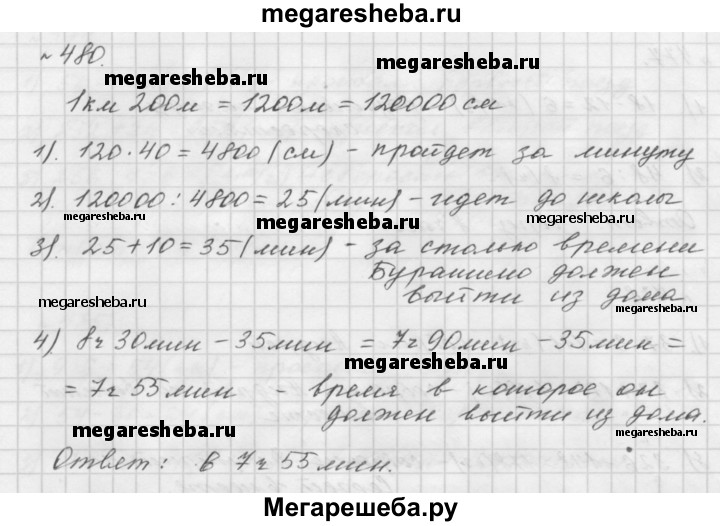 megaresheba.ru
№ 480.
megaresheba.ru megaresheba.ru
1 км 200 м = 1200 м = 120000 см
1). 120 · 40 = 4800 (см) - пройдет за минуту
2). 120000 : 4800 = 25 (мин) - идет до школы
megaresheba.ru megaresheba.ru megaresheba.ru
3). 25 + 10 = 35 (мин) - за столько времени
Буратино должен
megaresheba.ru выйти из дома
4) 8 ч 30 мин - 35 мин = 7 ч 90 мин - 35 мин =
megaresheba.ru
= 7 ч 55 мин - время в которое он
megaresheba.ru
должен выйти из дома.
megaresheba.ru megaresheba.ru
Ответ: в 7 ч 55 мин.
Мегарешеба.ру